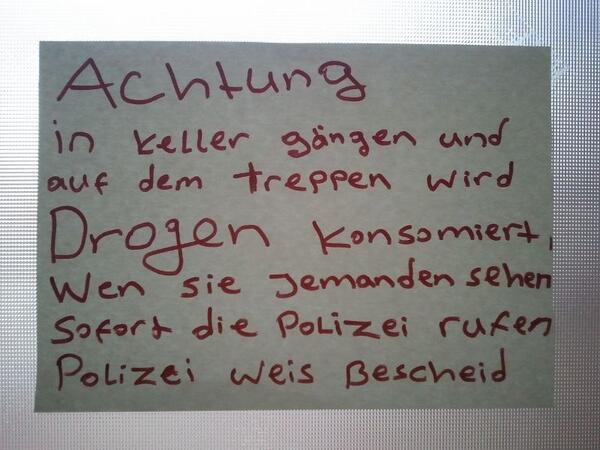 Achtung
in keller gängen und
auf dem treppen wird
Drogen konsomiert,
Wen sie jemanden sehen
Sofort die Polizei rufen
Polizei weis Bescheid